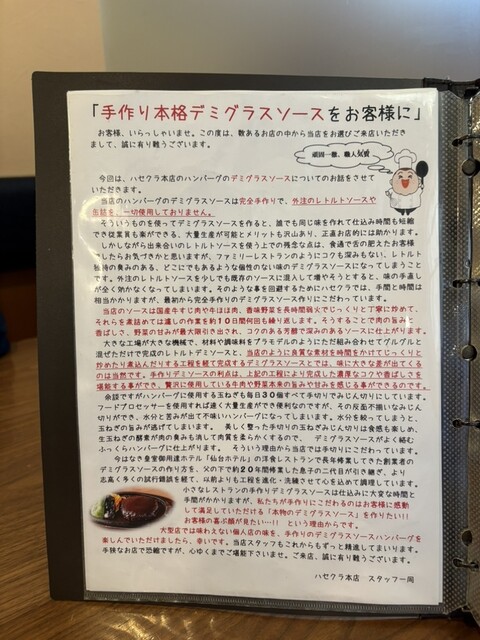 「手作り本格デミグラスソースをお客様に」
お客様、いらっしゃいませ。この度は、数あるお店の中から当店をお選びご来店いただき
まして、誠に有り難うございます。
頑固一徹、職人気質
今回は、ハセクラ本店のハンバーグのデミグラスソースについてのお話をさせて
いただきます。
当店のハンバーグのデミグラスソースは完全手作りで、外注のレトルトソースや
缶詰を、一切使用しておりません。
そういうものを使ってデミグラスソースを作ると、誰でも同じ味を作れて仕込み時間も短縮
でき従業員も楽ができる、大量生産が可能とメリットも沢山あり、正直お店的には助かります。
しかしながら出来合いのレトルトソースを使う上での残念な点は、食通で舌の肥えたお客様
でしたらお気づきかと思いますが、ファミリーレストランのようにコクも深みもない、レトルト
独特の臭みのある、どこにでもあるような個性のない味のデミグラスソースになってしまうこと
です。外注のレトルトソースを少しでも既存のソースに混入して増やそうとすると、味の手直し
が全く効かなくなってしまいます。そのような事を回避するためにハセクラでは、手間と時間は
相当かかりますが、最初から完全手作りのデミグラスソース作りにこだわっています。
当店のソースは国産牛すじ肉や牛ほほ肉、香味野菜を長時間弱火でじっくりと丁寧に炒めて、
それらを煮詰めては濾しの作業を約１０日間何回も繰り返します。そうすることで肉の旨みと
香ばしさ、野菜の甘みが最大限引き出され、コクのある芳醇で深みのあるソースに仕上がります。
大きな工場が大きな機械で、材料や調味料をプラモデルのようにただ組み合わせてグルグルと
混ぜただけで完成のレトルトデミソースと、当店のように良質な素材を時間をかけてじっくりと
炒めたり裏込んだりする工程を経て完成するデミグラスソースとでは、味に大きな差が出てくる
のは当然です。手作りデミソースの利点は、上記の工程により完成した濃厚なコクや香ばしさを
堪能する事ができ、贅沢に使用している牛肉や野菜本来の旨みや甘みを感じる事ができるのです。
余談ですがハンバーグに使用する玉ねぎも毎日３０個すべて手切りでみじん切りにしています。
フードプロセッサーを使用すれば速く大量生産ができ便利なのですが、その反面不揃いなみじん
切りができ、水分と苦みが出て不味いハンバーグになってしまいます。水分を絞ってしまうと、
玉ねぎの旨みが逃げてしまいます。 美しく整った手切りの玉ねぎみじん切りは食感も楽しめ、
生玉ねぎの酵素が肉の臭みも消して肉質を柔らかくするので、 デミグラスソースがよく絡む
ふっくらハンバーグに仕上がります。 そういう理由から当店では手切りにこだわっています。
今はなき皇室御用達ホテル「仙台ホテル」の洋食レストランで長年修業してきた創業者の
デミグラスソースの作り方を、父の下で約２０年間修業した息子の二代目が引き継ぎ、より
志高く多くの試行錯誤を経て、以前よりも工程を進化・洗練させて心を込めて調理しています。
小さなレストランの手作りデミグラスソースは仕込みに大変な時間と
手間がかかりますが、私たちが手作りにこだわるのはお客様に感動
して満足していただける「本物のデミグラスソース」を作りたい!!
お客様の喜ぶ顔が見たい…!! という理由からです。
大型店では味わえない個人店の味を、手作りのデミグラスソースハンバーグを
楽しんでいただけましたら、幸いです。当店スタッフもこれからもずっと精進してまいります。
手狭なお店で恐縮ですが、心ゆくまでご堪能下さいませ。ご来店、誠に有り難うございます。
ハセクラ本店 スタッフ一同